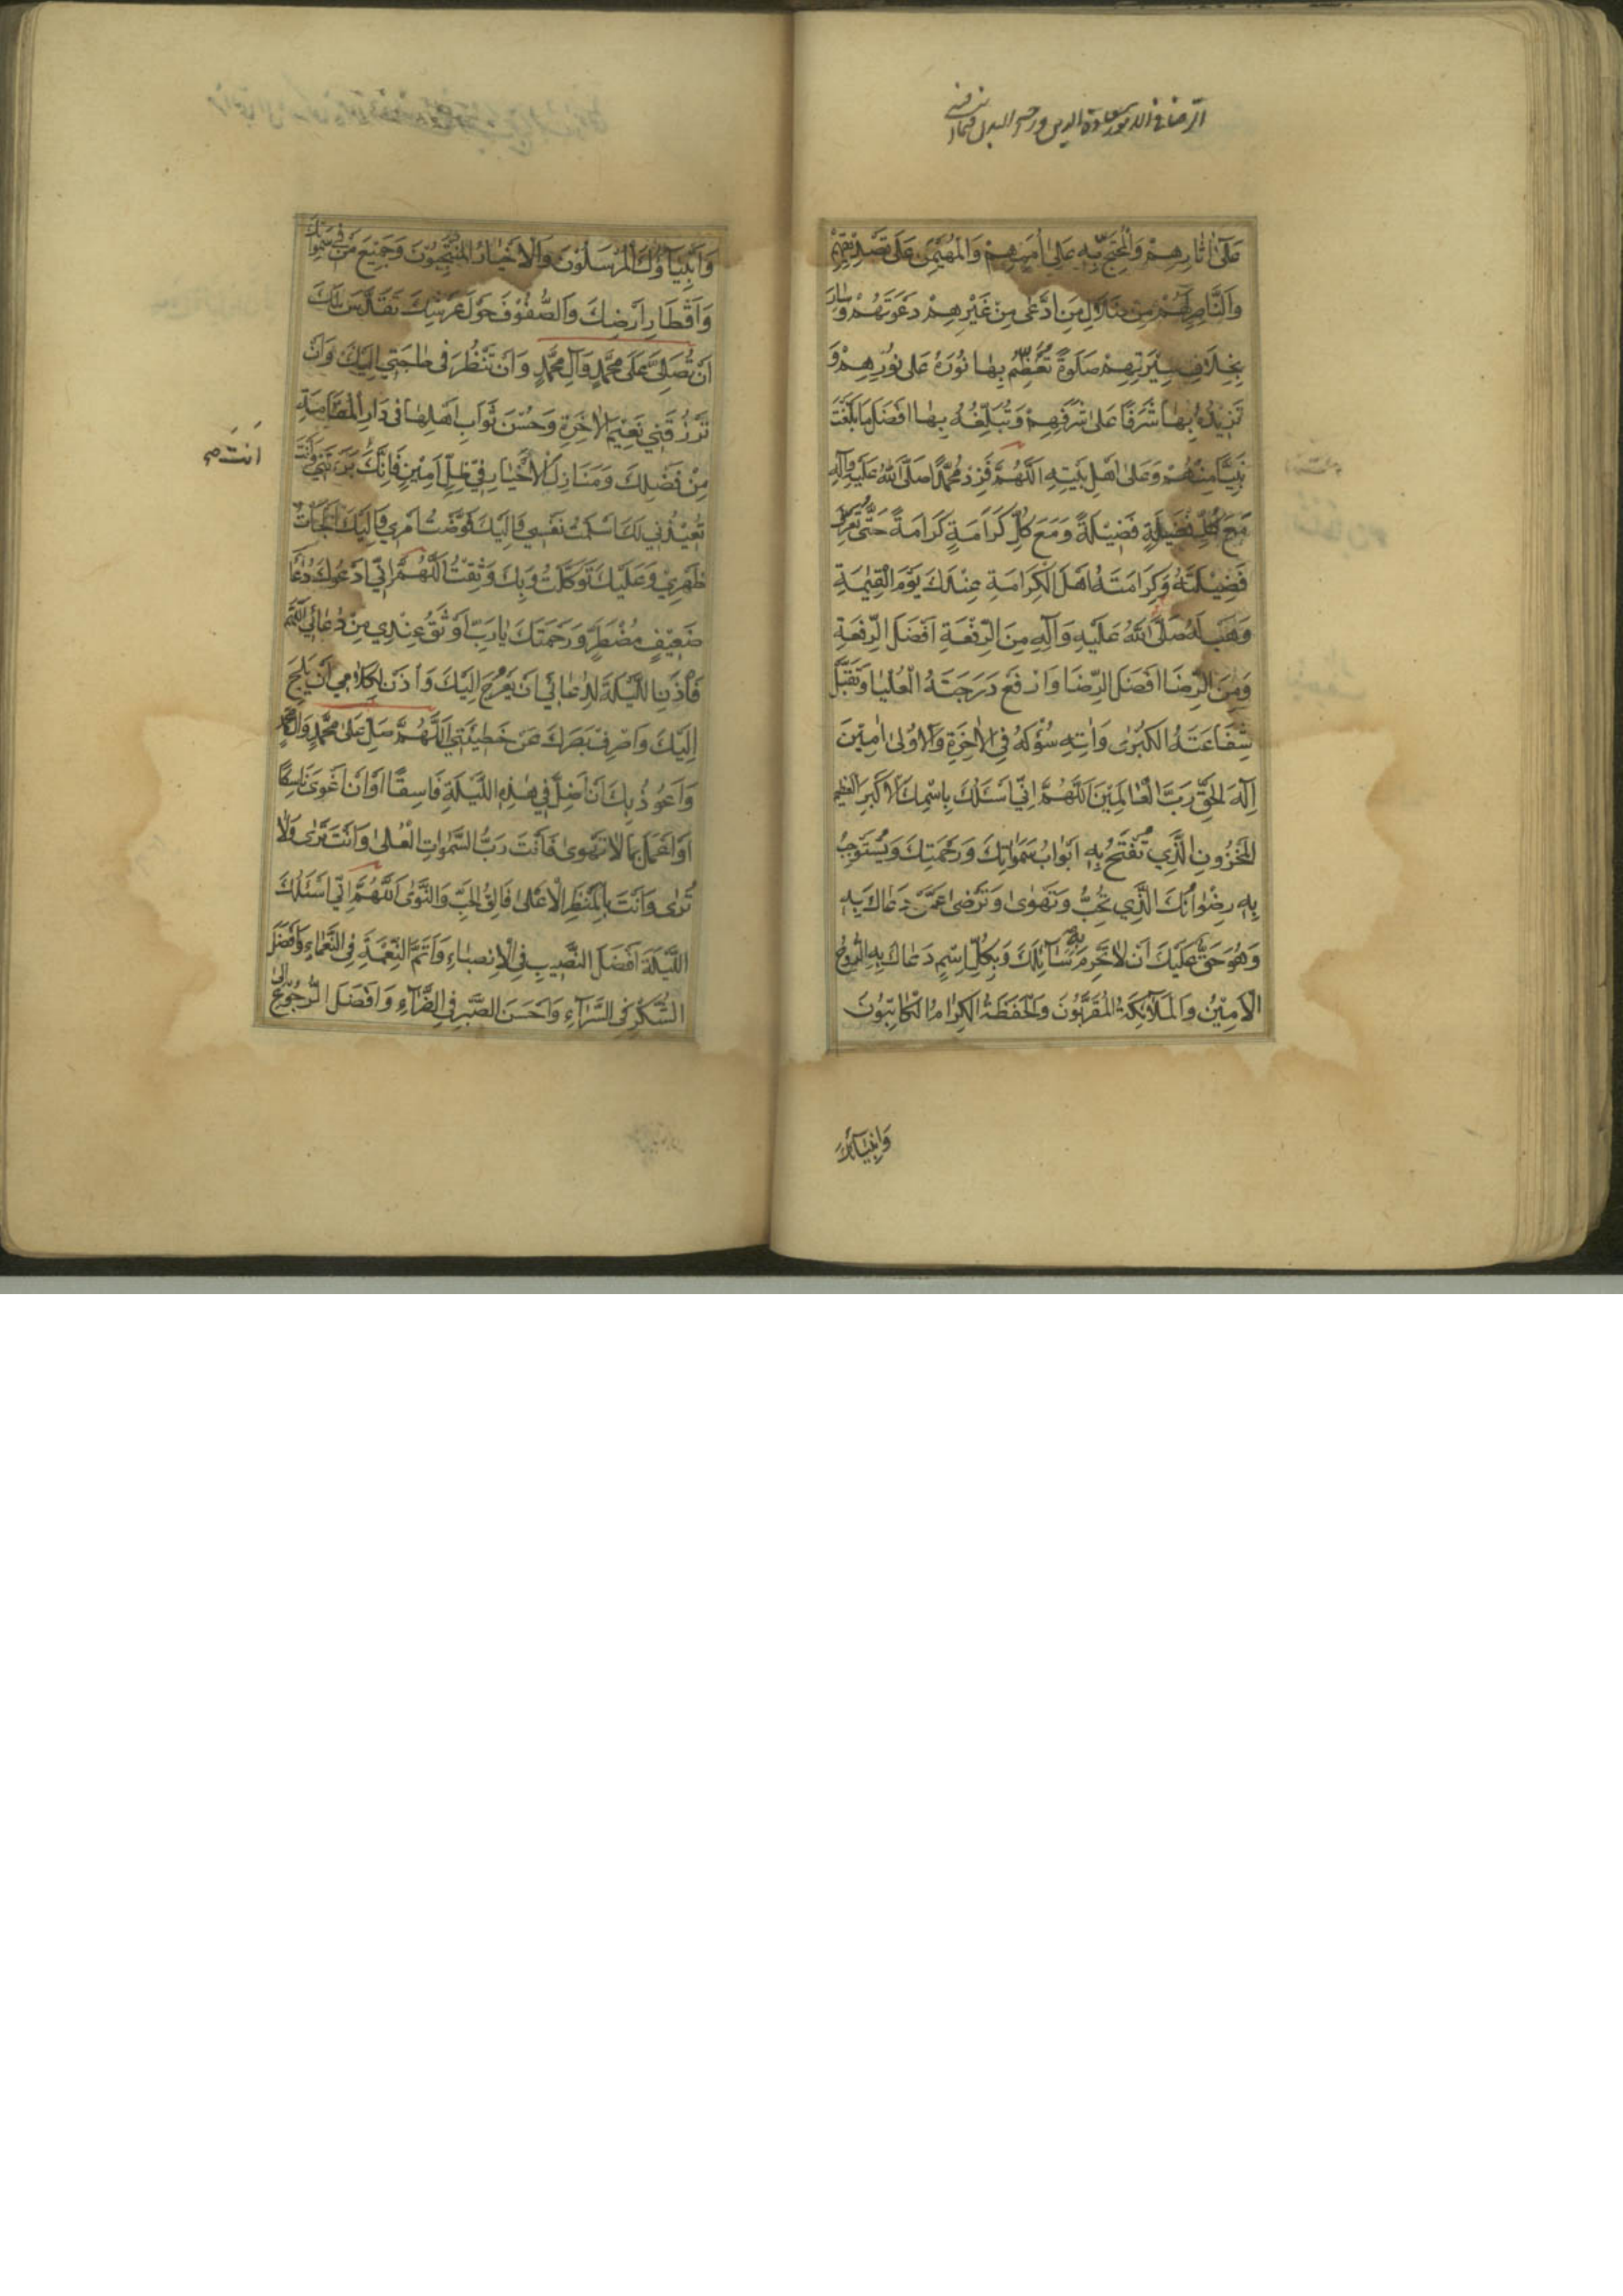 عَلىٰ اٰثارِهِمْ وَالْمُحْتَجِّ بِهِ عَلىٰ اُمَمِهِمْ وَالْمُهَيْمِنِ عَلىٰ تَصْدِيْقِهِمْ
وَالنَّاصِرِ لَهُمْ مِنْ ضَلالِ مَنِ ادَّعىٰ مِنْ غَيْرِهِمْ دَعْوَتَهُمْ وَسٰارَ
بِخِلَافِ سِيْرَتِهِمْ صَلَوةً تُعَظِّمُ بِهٰا نُورَهُ عَلىٰ نُورِهِمْ وَ
تَزِيْدُهُ بِهٰا شَرَفًا عَلىٰ شَرَفِهِمْ وَتُبَلِّغُهُ بِهٰا اَفْضَلَ مٰا بَلَّغْتَ
نَبِيًّا مِنْهُمْ وَعَلىٰ اَهْلِ بَيْتِهِ اَللّٰهُمَّ فَزِدْ مُحَمَّدًا صَلَّى اللّٰهُ عَلَيْهِ وَآلِهِ
مَعَ كُلِّ فَضِيْلَةٍ فَضِيْلَةً وَمَعَ كُلِّ كَرَامَةٍ كَرَامَةً حَتّٰى تُعَرِّفَ
فَضِيْلَتَهُ وَكَرَامَتَهُ اَهْلَ الْكَرَامَةِ عِنْدَكَ يَوْمَ الْقِيٰمَةِ
وَهَبْ لَهُ صَلَّى اللّٰهُ عَلَيْهِ وَآلِهِ مِنَ الرِّفْعَةِ اَفْضَلَ الرِّفْعَةِ
وَمِنَ الرِّضَا اَفْضَلَ الرِّضَا وَارْفَعْ دَرَجَتَهُ الْعُلْيٰا وَتَقَبَّلْ
شَفَاعَتَهُ الْكُبْرىٰ وَاٰتِهِ سُؤْلَهُ فِي الْاٰخِرَةِ وَالْاُوْلىٰ اٰمِيْنَ
اِلٰهَ الْحَقِّ رَبَّ الْعٰالَمِيْنَ اَللّٰهُمَّ اِنِّي اَسْئَلُكَ بِاسْمِكَ الْاَكْبَرِ الْعَظِيْمِ
الْمَخْزُونِ الَّذِي تَفْتَحُ بِهِ اَبْوٰابَ سَمٰوٰاتِكَ وَرَحْمَتِكَ وَيَسْتَوْجِبُ
بِهِ رِضْوٰانَكَ الَّذِي تُحِبُّ وَتَهْوىٰ وَتَرْضىٰ عَمَّنْ دَعٰاكَ بِهِ
وَهُوَ حَقٌّ عَلَيْكَ اَنْ لاٰ تَحْرِمَ بِهِ سٰآئِلَكَ وَبِكُلِّ اسْمٍ دَعٰاكَ بِهِ الرُّوحُ
الْاَمِيْنُ وَالْمَلٰآئِكَةُ الْمُقَرَّبُونَ وَالْحَفَظَةُ الْكِرٰامُ الْكٰاتِبُونَ
وَاَنْبِيٰآؤُكَ
وَاَنْبِيٰآؤُكَ الْمُرْسَلُوْنَ وَالْاَخْيٰارُ الْمُنْتَجَبُوْنَ وَجَمِيْعُ مَنْ فِي سَمٰوٰاتِكَ
وَاَقْطَارِ اَرْضِكَ وَالصُّفُوْفُ حَوْلَ عَرْشِكَ تُقَدِّسُ لَكَ
اَنْ تُصَلِّيَ عَلىٰ مُحَمَّدٍ وَآلِ مُحَمَّدٍ وَاَنْ تَنْظُرَ فِي حٰاجَتِي اِلَيْكَ وَاَنْ
تَرْزُقَنِي نَعِيْمَ الْاٰخِرَةِ وَحُسْنَ ثَوٰابِ اَهْلِهٰا فِي دَارِ الْمُقٰامَةِ
مِنْ فَضْلِكَ وَمَنٰازِلَ الْاَخْيٰارِ فِي ظِلٍّ اَمِيْنٍ فَاِنَّكَ بَرَءْتَنِي وَاَنْتَ
اَنْتَ صح
تُعِيْدُنِي لَكَ اَسْلَمْتُ نَفْسِي وَاِلَيْكَ فَوَّضْتُ اَمْرِي وَاِلَيْكَ اَلْجَاْتُ
ظَهْرِي وَعَلَيْكَ تَوَكَّلْتُ وَبِكَ وَثِقْتُ اَللّٰهُمَّ اِنِّي اَدْعُوكَ دُعٰاءَ
ضَعِيْفٍ مُضْطَرٍّ وَرَحْمَتُكَ يٰا رَبِّ اَوْثَقُ عِنْدِي مِنْ دُعٰائِي اَللّٰهُمَّ
فَأْذَنِ اللَّيْلَةَ لِدُعٰائِي اَنْ يَعْرُجَ اِلَيْكَ وَأْذَنْ لِكَلاٰمِي اَنْ يَلِجَ
اِلَيْكَ وَاصْرِفْ بَصَرَكَ عَنْ خَطِيْئَتِي اَللّٰهُمَّ صَلِّ عَلىٰ مُحَمَّدٍ وَآلِ مُحَمَّدٍ
وَاَعُوذُ بِكَ اَنْ اَضِلَّ فِي هٰذِهِ اللَّيْلَةِ فَاسِقًا اَوْ اَنْ اَغْوىٰ نٰاسِكًا
اَوْ اَعْمَلَ بِمٰا لاٰ تَهْوىٰ فَاَنْتَ رَبُّ السَّمٰوٰاتِ الْعُلىٰ وَاَنْتَ تَرىٰ وَلاٰ
تُرىٰ وَاَنْتَ بِالْمَنْظَرِ الْاَعْلىٰ فَالِقُ الْحَبِّ وَالنَّوىٰ اَللّٰهُمَّ اِنِّي اَسْئَلُكَ
اللَّيْلَةَ اَفْضَلَ النَّصِيْبِ فِي الْاَنْصِبٰاءِ وَاَتَمَّ النِّعْمَةِ فِي النَّعْمٰاءِ وَاَفْضَلَ
الشُّكْرِ فِي السَّرَّآءِ وَاَحْسَنَ الصَّبْرِ فِي الضَّرَّآءِ وَاَفْضَلَ الرُّجُوْعِ اِلىٰ